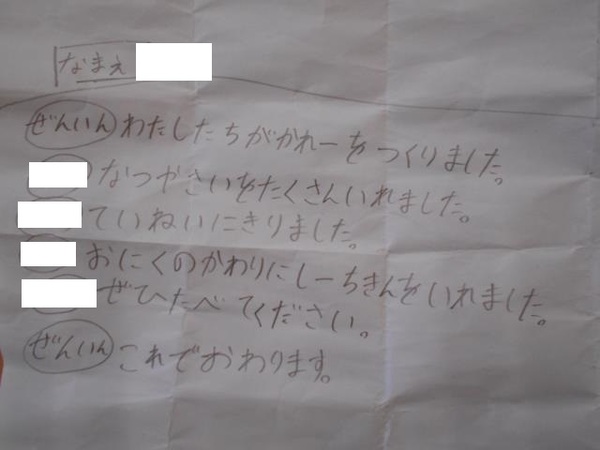 なまえ
ぜんいん わたしたちがかれーをつくりました。
なつやさいをたくさんいれました。
ていねいにきりました。
おにくのかわりにしーちきんをいれました。
ぜひたべてください。
ぜんいん これでおわります。